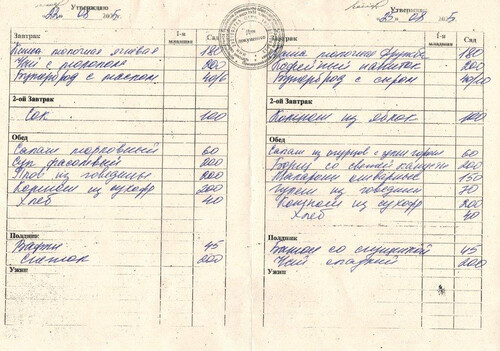 Утверждаю
08
Завтрак
1-я младшая
Сад
Каша молочная ячневая 180
Чай с молоком 200
Бутерброд с маслом 40/6
2-ой Завтрак
Сок 100
Обед
Салат морковный 60
Суп фасолевый 200
Плов из говядины 200
Компот из сухофр 200
Хлеб 40
Полдник
Вафли 45
Снежок 200
Ужин
Утверждаю
25 08
Завтрак
1-я младшая
Сад
Каша молочная Дружба 180
Кофейный напиток 200
Бутерброд с сыром
2-ой Завтрак
Компот из яблок 100
Обед
Салат из огурцов с 60
Борщ со свежей капусты 200
Макароны отварные 150
Гуляш из говядины 70
Компот из сухофр 200
Хлеб 40
Полдник
Батон со сгущенкой 45
Чай сладкий 200
Ужин
Для документов